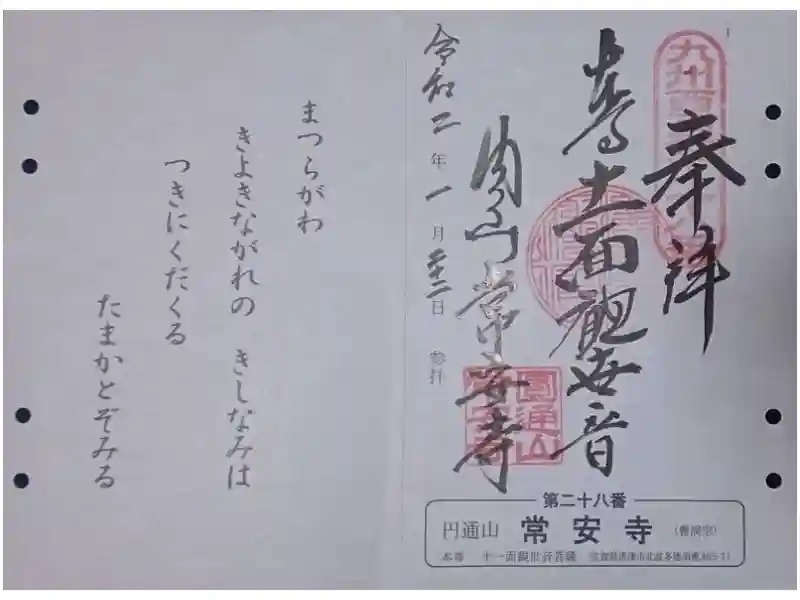 奉拝
十一面観世音
円通山
常安寺
令和二年一月二十二日 参拝
まつらがわ
きよきながれの きしなみは
つきにくだくる
たまかとぞみる
第二十八番
円通山 常安寺 (曹洞宗)
本尊 十一面観世音菩薩